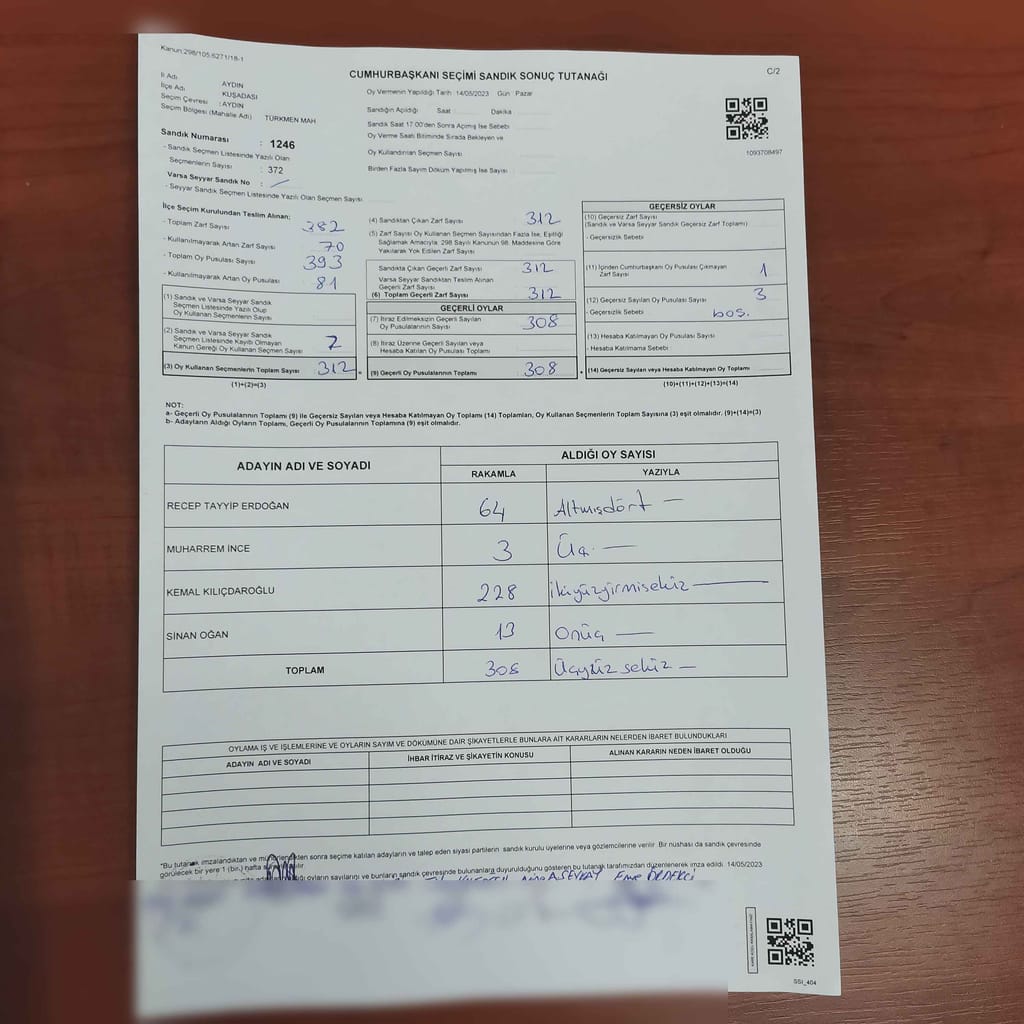 Kanun:298/105.6271/18-1
CUMHURBAŞKANI SEÇİMİ SANDIK SONUÇ TUTANAĞI
C/2
İl Adı AYDIN
İlçe Adı KUŞADASI
Seçim Çevresi : AYDIN
Seçim Bölgesi (Mahalle Adı) TÜRKMEN MAH
Sandık Numarası : 1246
- Sandık Seçmen Listesinde Yazılı Olan
Seçmenlerin Sayısı : 372
Varsa Seyyar Sandık No :
- Seyyar Sandık Seçmen Listesinde Yazılı Olan Seçmen Sayısı
Oy Vermenin Yapıldığı Tarih :14/05/2023 Gün : Pazar
Sandığın Açıldığı Saat Dakika
Sandık Saat 17:00'den Sonra Açılmış İse Sebebi
Oy Verme Saati Bitiminde Sırada Bekleyen ve
Oy Kullandırılan Seçmen Sayısı
Birden Fazla Sayım Döküm Yapılmış İse Sayısı
1093708497
İlçe Seçim Kurulundan Teslim Alınan;
- Toplam Zarf Sayısı 382
- Kullanılmayarak Artan Zarf Sayısı 70
- Toplam Oy Pusulası Sayısı 393
- Kullanılmayarak Artan Oy Pusulası 81
(1) Sandık ve Varsa Seyyar Sandık
Seçmen Listesinde Yazılı Olup
Oy Kullanan Seçmenlerin Sayısı
(2) Sandık ve Varsa Seyyar Sandık
Seçmen Listesinde Kayıtlı Olmayan
Kanun Gereği Oy Kullanan Seçmen Sayısı
(3) Oy Kullanan Seçmenlerin Toplam Sayısı 312
(1)+(2)=(3)
(4) Sandıktan Çıkan Zarf Sayısı 312
(5) Zarf Sayısı Oy Kullanan Seçmen Sayısından Fazla İse, Eşitliği
Sağlamak Amacıyla, 298 Sayılı Kanunun 98. Maddesine Göre
Yakılarak Yok Edilen Zarf Sayısı
Sandıkta Çıkan Geçerli Zarf Sayısı 312
Varsa Seyyar Sandıktan Teslim Alınan
Geçerli Zarf Sayısı
(6) Toplam Geçerli Zarf Sayısı 312
GEÇERLİ OYLAR
(7) İtiraz Edilmeksizin Geçerli Sayılan
Oy Pusulalarının Sayısı 308
(8) İtiraz Üzerine Geçerli Sayılan veya
Hesaba Katılan Oy Pusulası Toplamı
(9) Geçerli Oy Pusulalarının Toplamı 308
GEÇERSİZ OYLAR
(10) Geçersiz Zarf Sayısı
(Sandık ve Varsa Seyyar Sandık Geçersiz Zarf Toplamı)
- Geçersizlik Sebebi
(11) İçinden Cumhurbaşkanı Oy Pusulası Çıkmayan
Zarf Sayısı 1
(12) Geçersiz Sayılan Oy Pusulası Sayısı 3
- Geçersizlik Sebebi boş.
(13) Hesaba Katılmayan Oy Pusulası Sayısı
- Hesaba Katılmama Sebebi
(14) Geçersiz Sayılan veya Hesaba Katılmayan Oy Toplamı
(10)+(11)+(12)+(13)=(14)
NOT:
a- Geçerli Oy Pusulalarının Toplamı (9) ile Geçersiz Sayılan veya Hesaba Katılmayan Oy Toplamı (14) Toplamları, Oy Kullanan Seçmenlerin Toplam Sayısına (3) eşit olmalıdır. (9)+(14)=(3)
b- Adayların Aldığı Oyların Toplamı, Geçerli Oy Pusulalarının Toplamına (9) eşit olmalıdır.
ADAYIN ADI VE SOYADI ALDIĞI OY SAYISI
RAKAMLA YAZIYLA
RECEP TAYYİP ERDOĞAN 64 Altmışdört
MUHARREM İNCE 3 Üç.
KEMAL KILIÇDAROĞLU 228 ikiyüzyirmisekiz
SİNAN OĞAN 13 Onüç
TOPLAM 308 Üçyüz sekiz
OYLAMA İŞ VE İŞLEMLERİNE VE OYLARIN SAYIM VE DÖKÜMÜNE DAİR ŞİKAYETLERLE BUNLARA AİT KARARLARIN NELERDEN İBARET BULUNDUKLARI
ADAYIN ADI VE SOYADI İHBAR İTİRAZ VE ŞİKAYETİN KONUSU ALINAN KARARIN NEDEN İBARET OLDUĞU
*Bu tutanak imzalandıktan ve sonra seçime katılan adayların ve talep eden siyasi partilerin sandık kurulu üyelerine veya gözlemcilerine verilir. Bir nüshası da sandık çevresinde
görülecek bir yere 1 (bir) hafta
oyların sayılarını ve bunların sandık çevresinde bulunanlara duyurulduğunu gösteren bu tutanak tarafımızdan düzenlenerek imza edildi. 14/05/2023
SSI_404